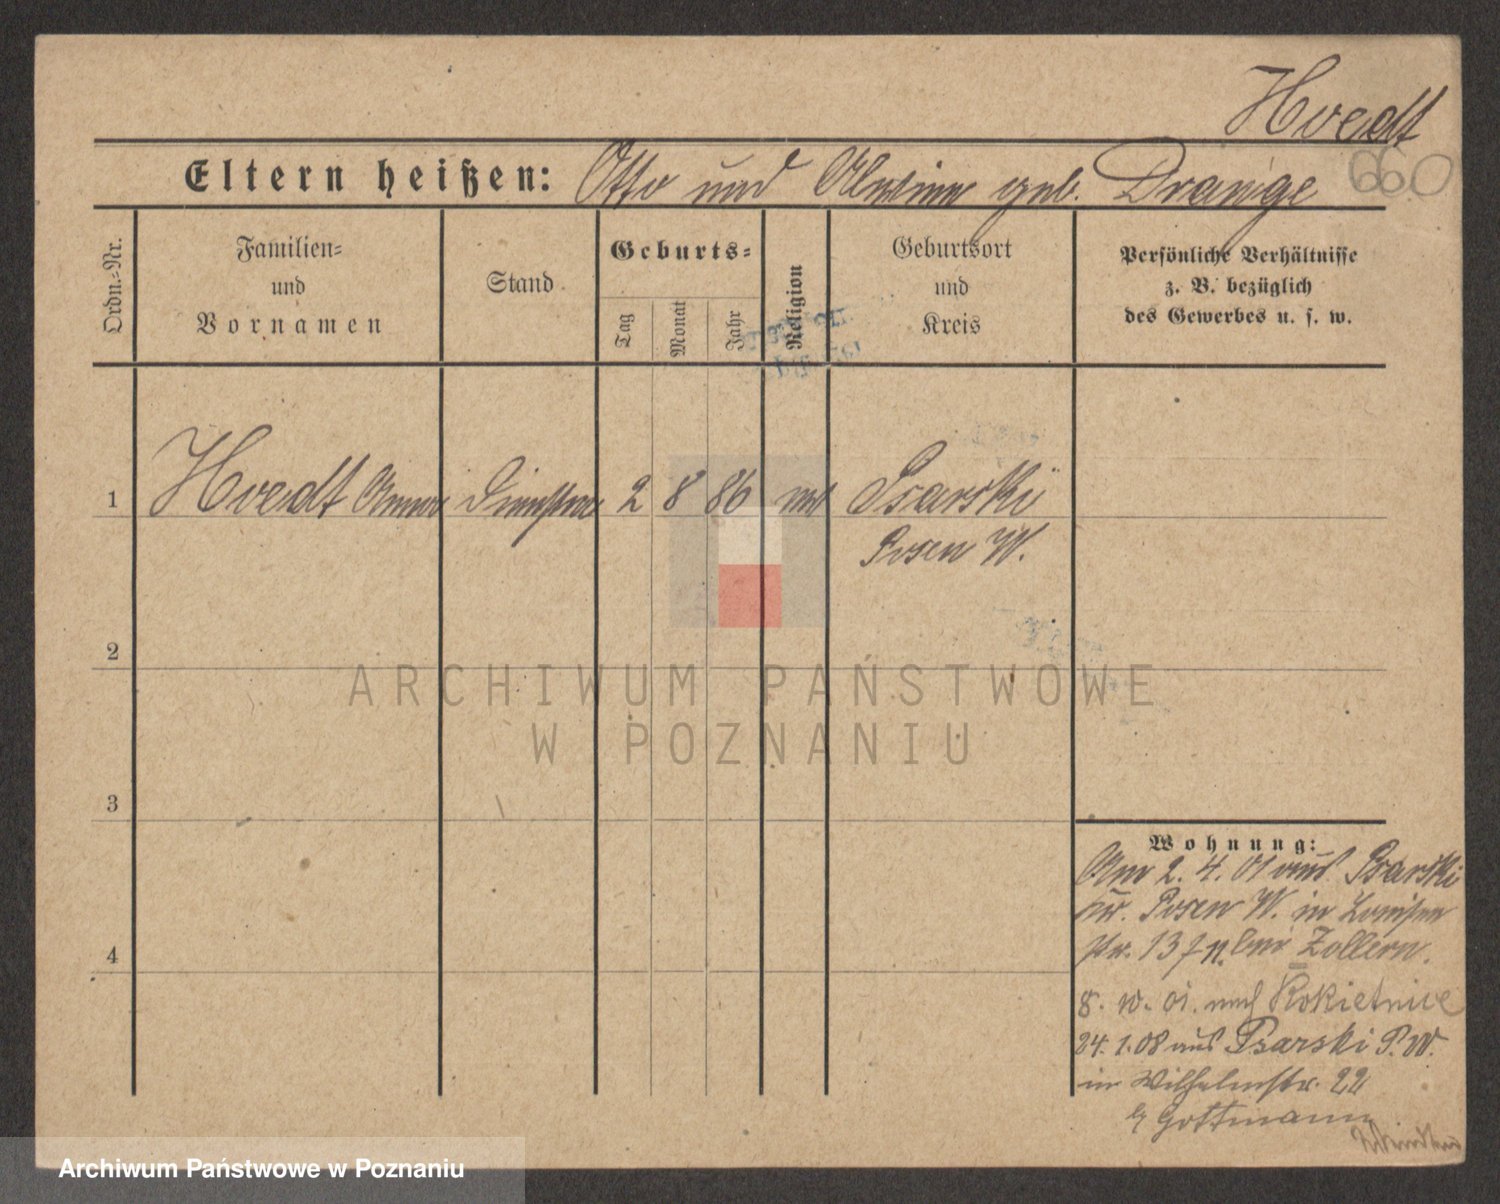 Hvedt
660
Eltern heißen: Otto und Alwine geb. Dranige
Ordn.-Nr.
Familien-
und
Vornamen
Stand
Geburts-
Tag
Monat
Jahr
Religion
Geburtsort
und
Kreis
Persönliche Verhältnisse
z. B. bezüglich
des Gewerbes u. s. w.
1 Hvedt Anna 2 8 86 Psarski
Posen W.
2
3
4
Wohnung:
Am 2. 4. 01 aus Psarski
Kr. Posen W. in Louisen
str. 13 bei Zollern.
8. 10. 01. nach Rokietnice
24. 1. 08 aus Psarski P. W.
in Wilhelmstr. 22
Gottmann
ARCHIWUM PAŃSTWOWE
W POZNANIU
Archiwum Państwowe w Poznaniu